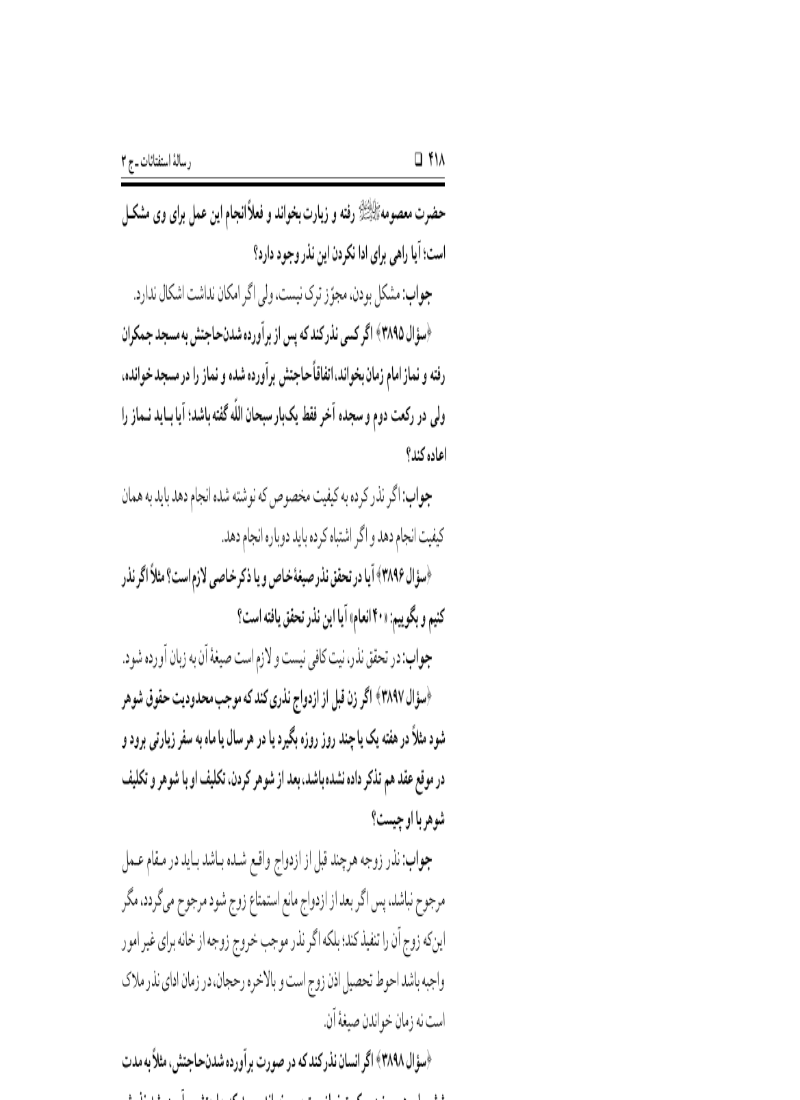 ۴۱۸ ❏ رسالهٔ استفتائات ـ ج ۳
حضرت معصومهﷺ رفته و زیارت بخواند و فعلاً انجام این عمل برای وی مشکل
است؛ آیا راهی برای ادا نکردن این نذر وجود دارد؟
جواب: مشکل بودن، مجوّز ترک نیست، ولی اگر امکان نداشت اشکال ندارد.
﴿سؤال ۳۸۹۵﴾ اگر کسی نذر کند که پس از برآورده شدن حاجتش به مسجد جمکران
رفته و نماز امام زمان بخواند، اتفاقاً حاجتش برآورده شده و نماز را در مسجد خوانده،
ولی در رکعت دوم و سجده آخر فقط یک‌بار سبحان اللّه گفته باشد؛ آیا باید نماز را
اعاده کند؟
جواب: اگر نذر کرده به کیفیت مخصوص که نوشته شده انجام دهد باید به همان
کیفیت انجام دهد و اگر اشتباه کرده باید دوباره انجام دهد.
﴿سؤال ۳۸۹۶﴾ آیا در تحقق نذر صیغهٔ خاص و یا ذکر خاصی لازم است؟ مثلاً اگر نذر
کنیم و بگوییم: «۴۰ انعام» آیا این نذر تحقق یافته است؟
جواب: در تحقق نذر، نیت کافی نیست و لازم است صیغهٔ آن به زبان آورده شود.
﴿سؤال ۳۸۹۷﴾ اگر زن قبل از ازدواج نذری کند که موجب محدودیت حقوق شوهر
شود مثلاً در هفته یک یا چند روز روزه بگیرد یا در هر سال یا ماه به سفر زیارتی برود و
در موقع عقد هم تذکر داده نشده باشد، بعد از شوهر کردن، تکلیف او با شوهر و تکلیف
شوهر با او چیست؟
جواب: نذر زوجه هرچند قبل از ازدواج واقع شده باشد باید در مقام عمل
مرجوح نباشد، پس اگر بعد از ازدواج مانع استمتاع زوج شود مرجوح می‌گردد، مگر
این‌که زوج آن را تنفیذ کند؛ بلکه اگر نذر موجب خروج زوجه از خانه برای غیر امور
واجبه باشد احوط تحصیل اذن زوج است و بالاخره رجحان، در زمان ادای نذر ملاک
است نه زمان خواندن صیغهٔ آن.
﴿سؤال ۳۸۹۸﴾ اگر انسان نذر کند که در صورت برآورده شدن حاجتش، مثلاً به مدت